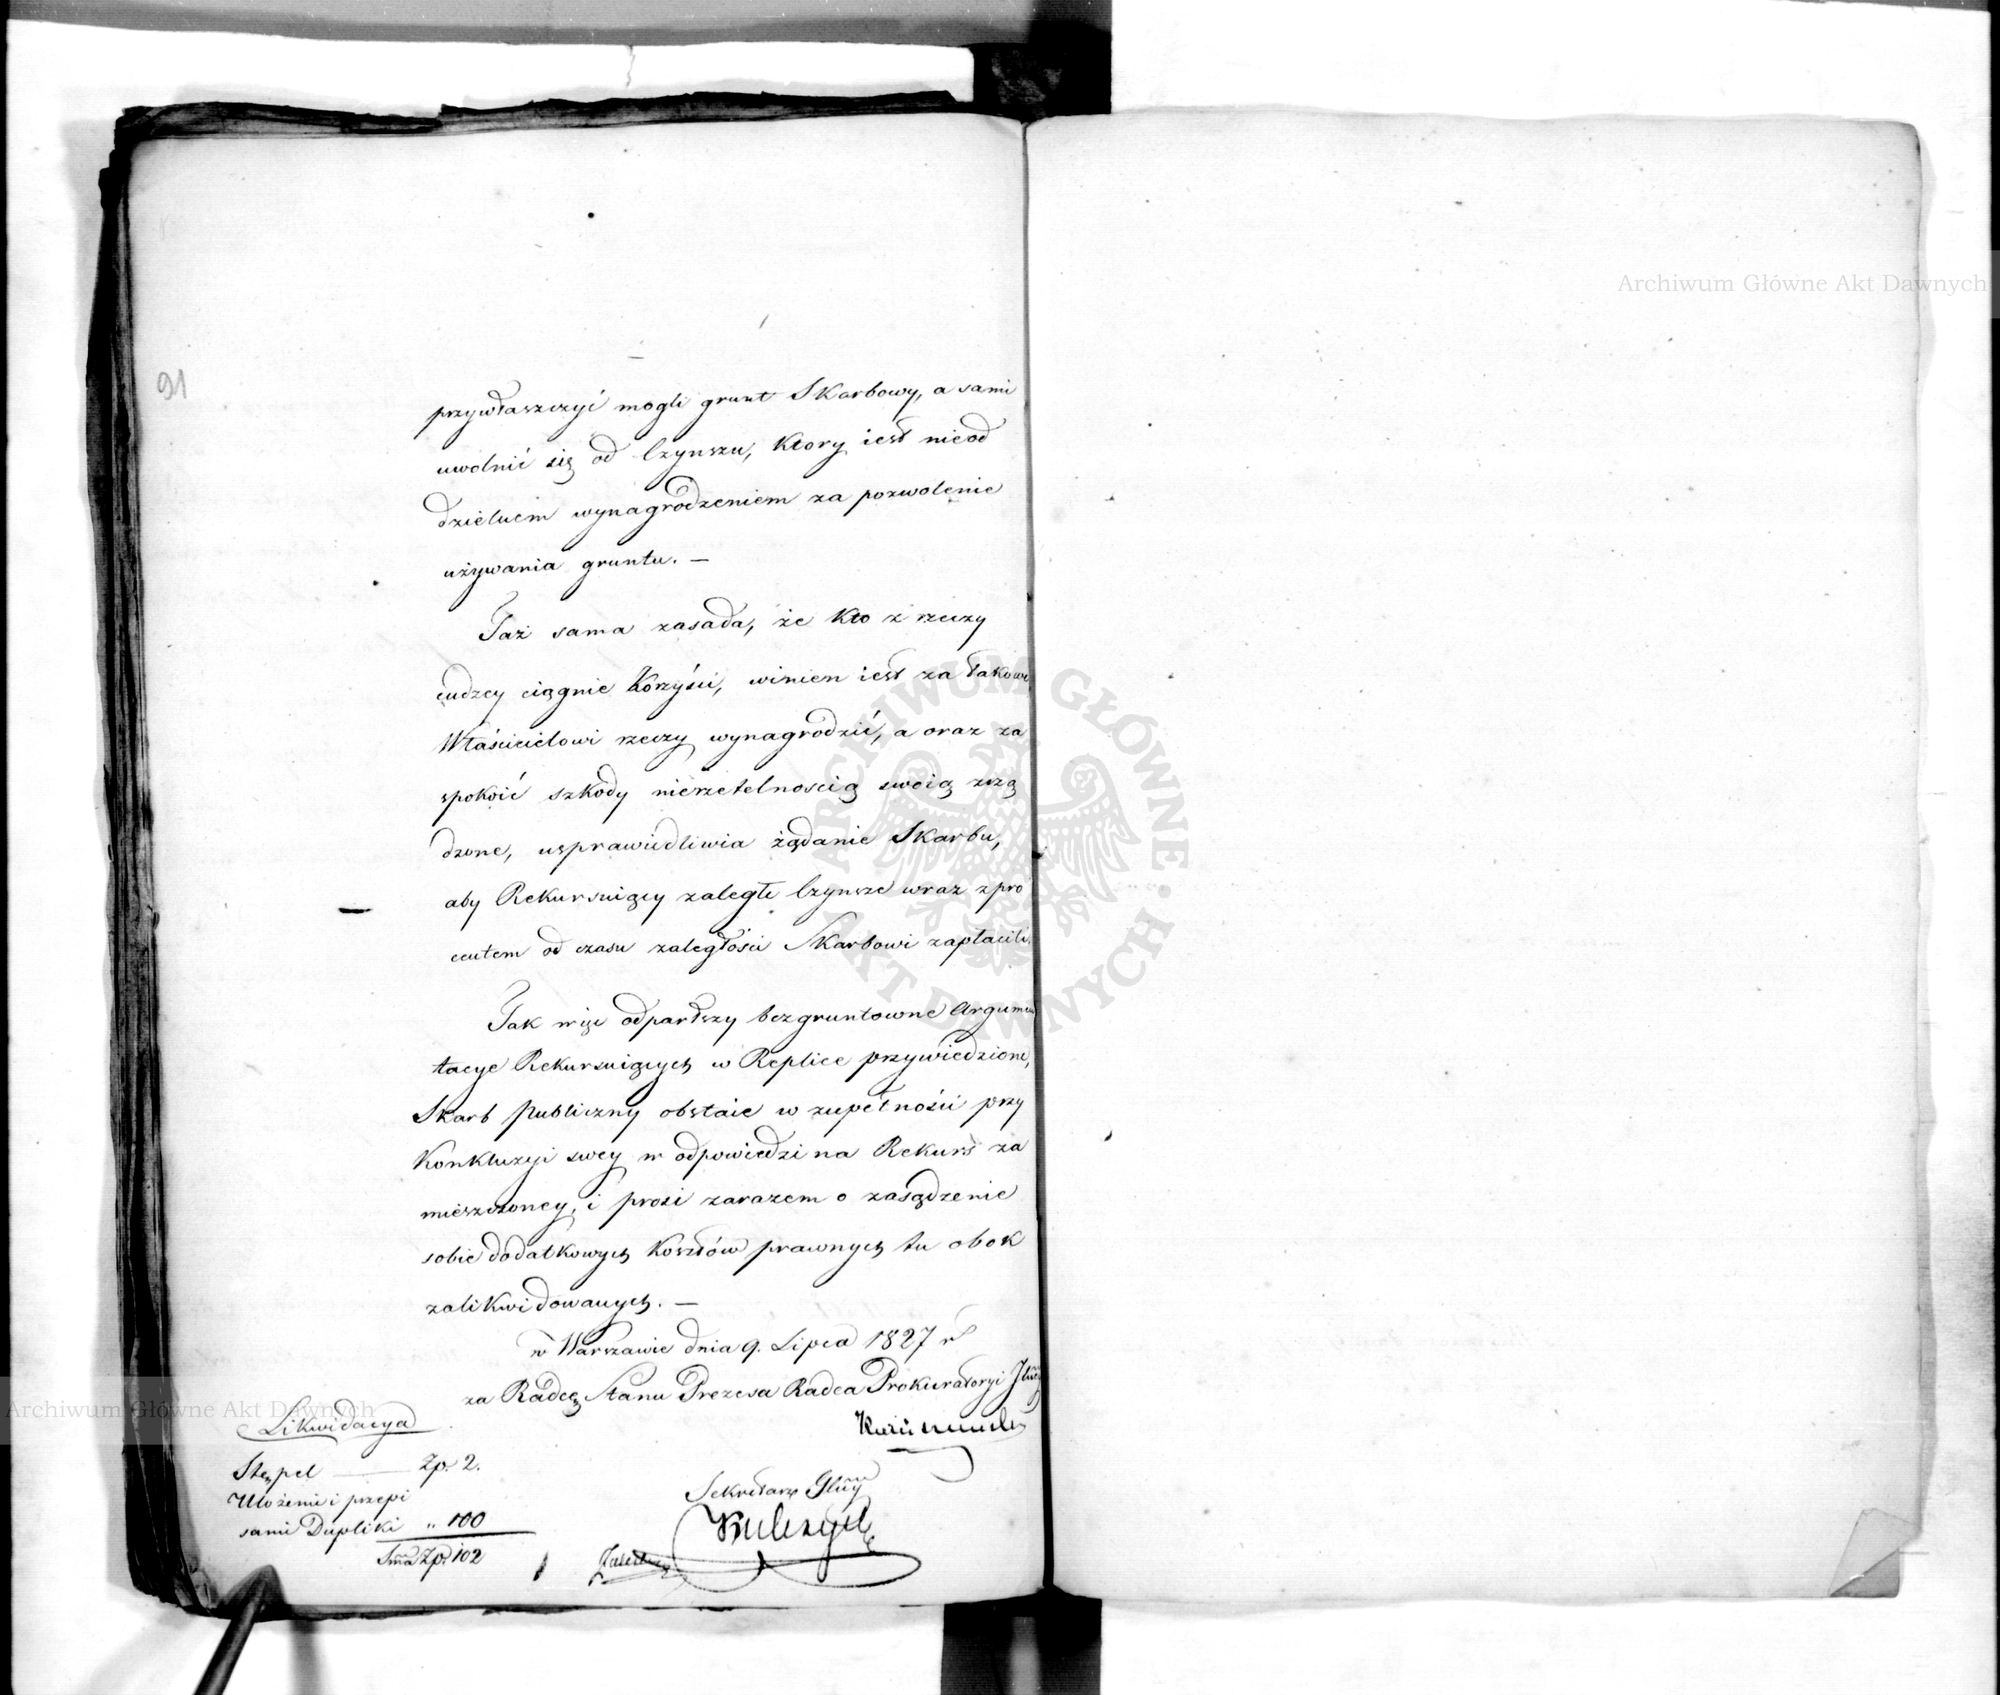 91
przywłaszczyć mogli grunt Skarbowy, a sami
uwolnić się od Czynszu, który iest nieod
dzielnem wynagrodzeniem za pozwolenie
używania gruntu. —
Taż sama zasada, że kto z rzeczy
cudzey ciągnie korzyści, winien iest za takowe
Właścicielowi rzeczy wynagrodzić, a oraz za
spokoić szkody nierzetelnoscią swoią zrzą
dzone, usprawiedliwia żądanie Skarbu,
aby Rekursuiący zaległe Czynsze wraz z pro
centem od czasu zaległości Skarbowi zapłacili.
Tak więc odparłszy bezgruntowne Argumen
tacye Rekursuiących w Replice przywiedzione,
Skarb Publiczny obstaie w zupełności przy
Konkluzyi swey w odpowiedzi na Rekurs za
mieszczoney, i prosi zarazem o zasądzenie
sobie dodatkowych kosztów prawnych tu obok
zalikwidowanych. —
w Warszawie dnia 9. Lipca 1827 r
za Radcę Stanu Prezesa Radca Prokuratoryi
Sekretarz
Likwidacya
Stępel — Zp. 2.
Ułożenie i przepi
sanie Dupliki „ 100
Sma Zp. 102
Archiwum Główne Akt Dawnych
Archiwum Główne Akt Dawnych
ARCHIWUM GŁÓWNE AKT DAWNYCH